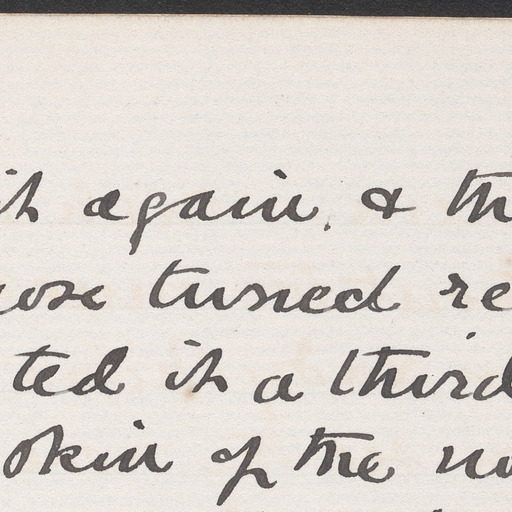 it again, & th
ose turned re
ted it a third
skin of the no